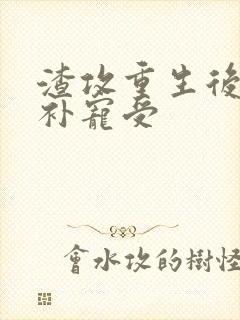 渣攻重生後
补寵受
會水攻的樹怪